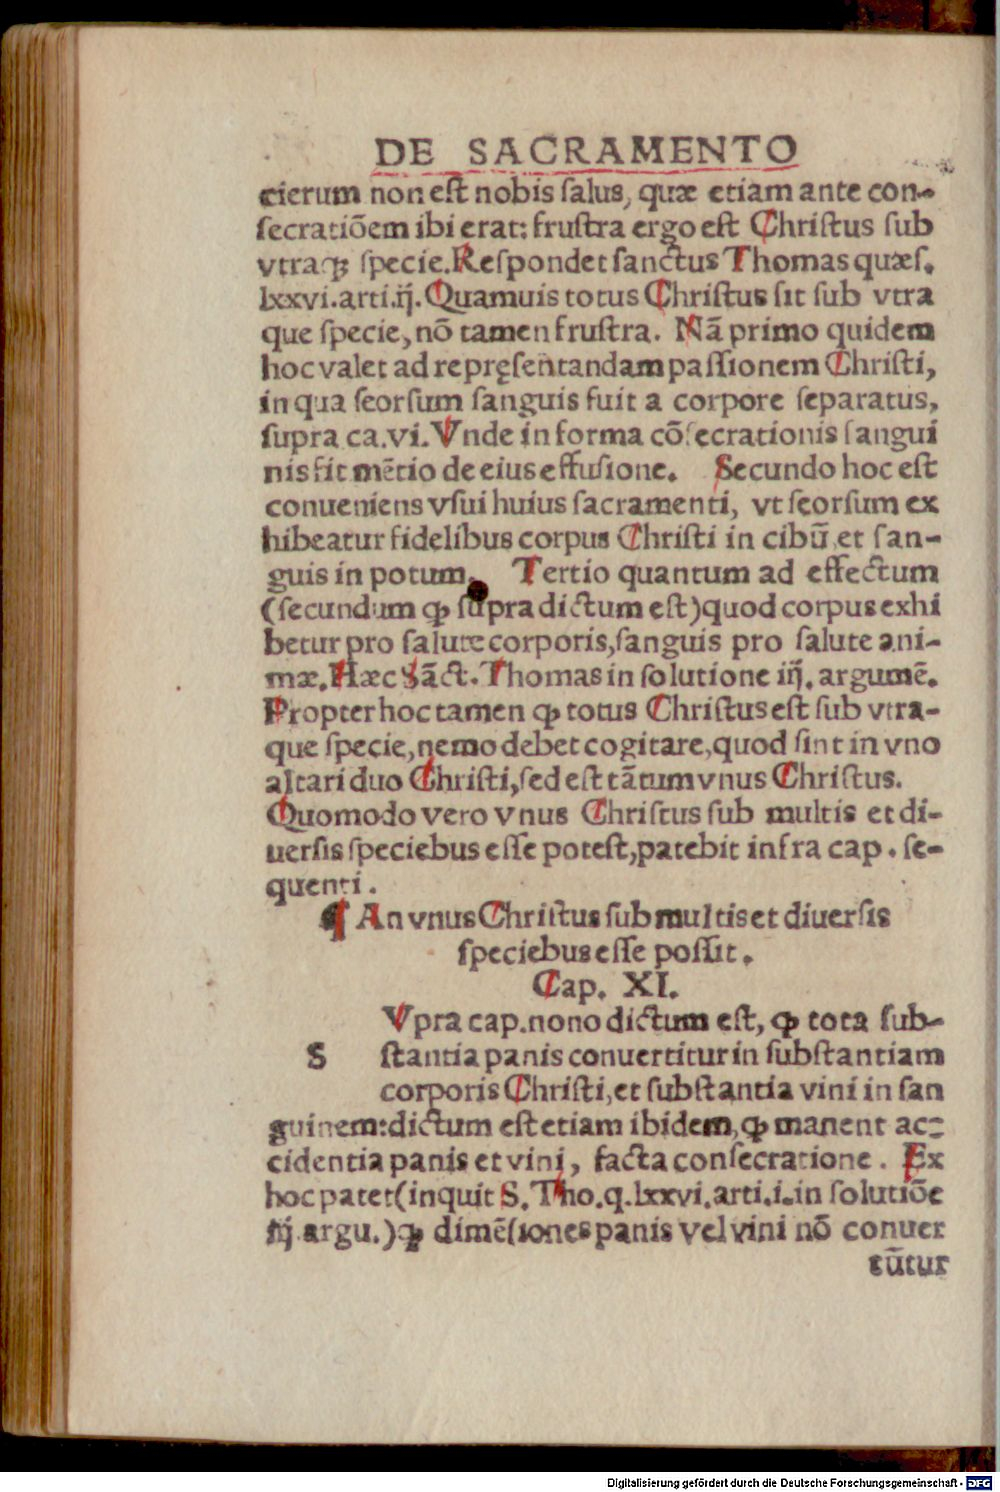 DE SACRAMENTO
cierum non est nobis salus, quæ etiam ante con-
secratiõem ibi erat: frustra ergo est Christus sub
vtraqꝫ specie. Respondet sanctus Thomas quæs.
lxxvi. arti. ij. Quamuis totus Christus sit sub vtra
que specie, nõ tamen frustra. Nã primo quidem
hoc valet ad repręsentandam passionem Christi,
in qua seorsum sanguis fuit a corpore separatus,
supra ca. vi. Vnde in forma cõsecrationis sangui
nis fit mẽtio de eius effusione. Secundo hoc est
conueniens vsui huius sacramenti, vt seorsum ex
hibeatur fidelibus corpus Christi in cibũ et san-
guis in potum. Tertio quantum ad effectum
(secundum ꝙ supra dictum est) quod corpus exhi
betur pro salute corporis, sanguis pro salute ani-
mæ. Hæc Sãct. Thomas in solutione iij. argumẽ.
Propter hoc tamen ꝙ totus Christus est sub vtra-
que specie, nemo debet cogitare, quod sint in vno
altari duo Christi, sed est tãtum vnus Christus.
Quomodo vero vnus Christus sub multis et di-
uersis speciebus esse potest, patebit infra cap. se-
quenti.
¶ An vnus Christus sub multis et diuersis
speciebus esse possit.
Cap. XI.
S Vpra cap. nono dictum est, ꝙ tota sub-
stantia panis conuertitur in substantiam
corporis Christi, et substantia vini in san
guinem: dictum est etiam ibidem, ꝙ manent ac-
cidentia panis et vini, facta consecratione. Ex
hoc patet (inquit S. Tho. q. lxxvi. arti. i. in solutiõe
iij. argu.) ꝙ dimẽsiones panis vel vini nõ conuer
tũtur
Digitalisierung gefördert durch die Deutsche Forschungsgemeinschaft - DFG